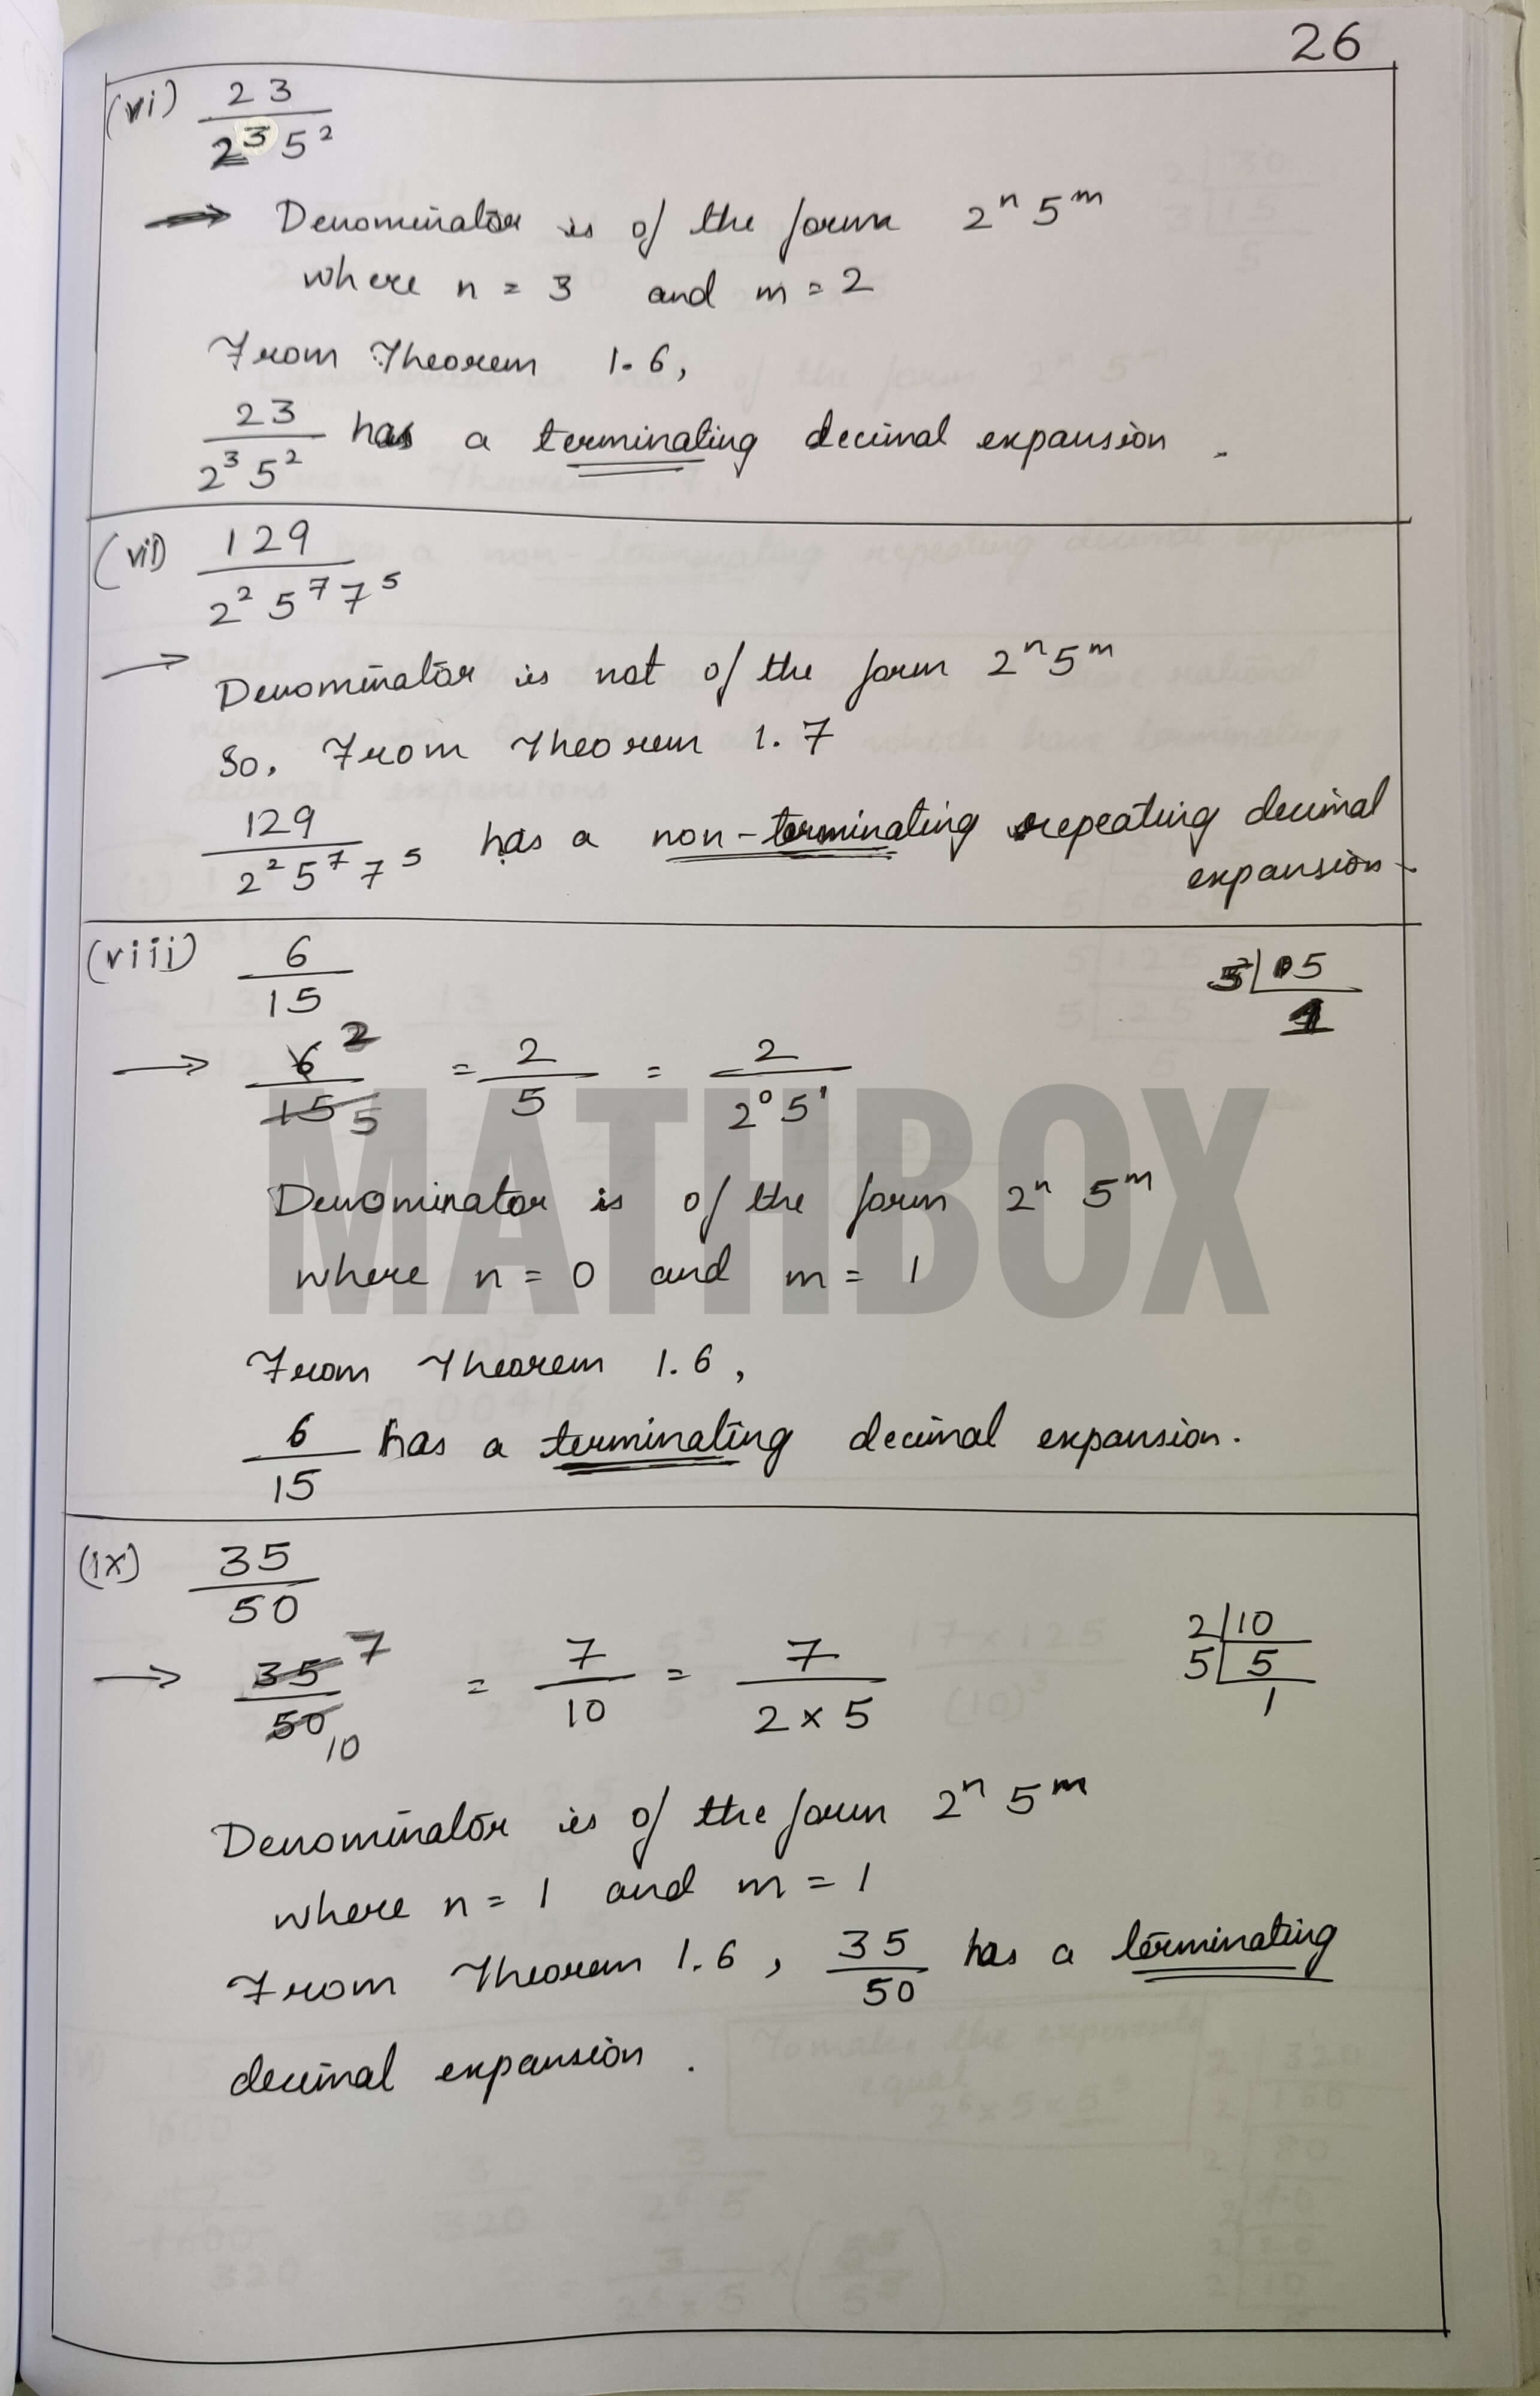 26
(vi) 23
2³ 5²
→ Denominator is of the form 2ⁿ 5ᵐ
where n = 3 and m = 2
From Theorem 1.6,
23
2³ 5² has a terminating decimal expansion.
(vii) 129
2² 5⁷ 7⁵
→ Denominator is not of the form 2ⁿ 5ᵐ
So, From Theorem 1.7
129
2² 5⁷ 7⁵ has a non-terminating repeating decimal
expansion.
(viii) 6
15
5 | 5
1
→ 6 2 = 2 = 2
15 5 5 2⁰ 5¹
MATHBOX
Denominator is of the form 2ⁿ 5ᵐ
where n = 0 and m = 1
From Theorem 1.6,
6 has a terminating decimal expansion.
15
(ix) 35
50
2 | 10
5 | 5
1
→ 35 7 = 7 = 7
50 10 10 2 × 5
Denominator is of the form 2ⁿ 5ᵐ
where n = 1 and m = 1
From Theorem 1.6, 35 has a terminating
50
decimal expansion.